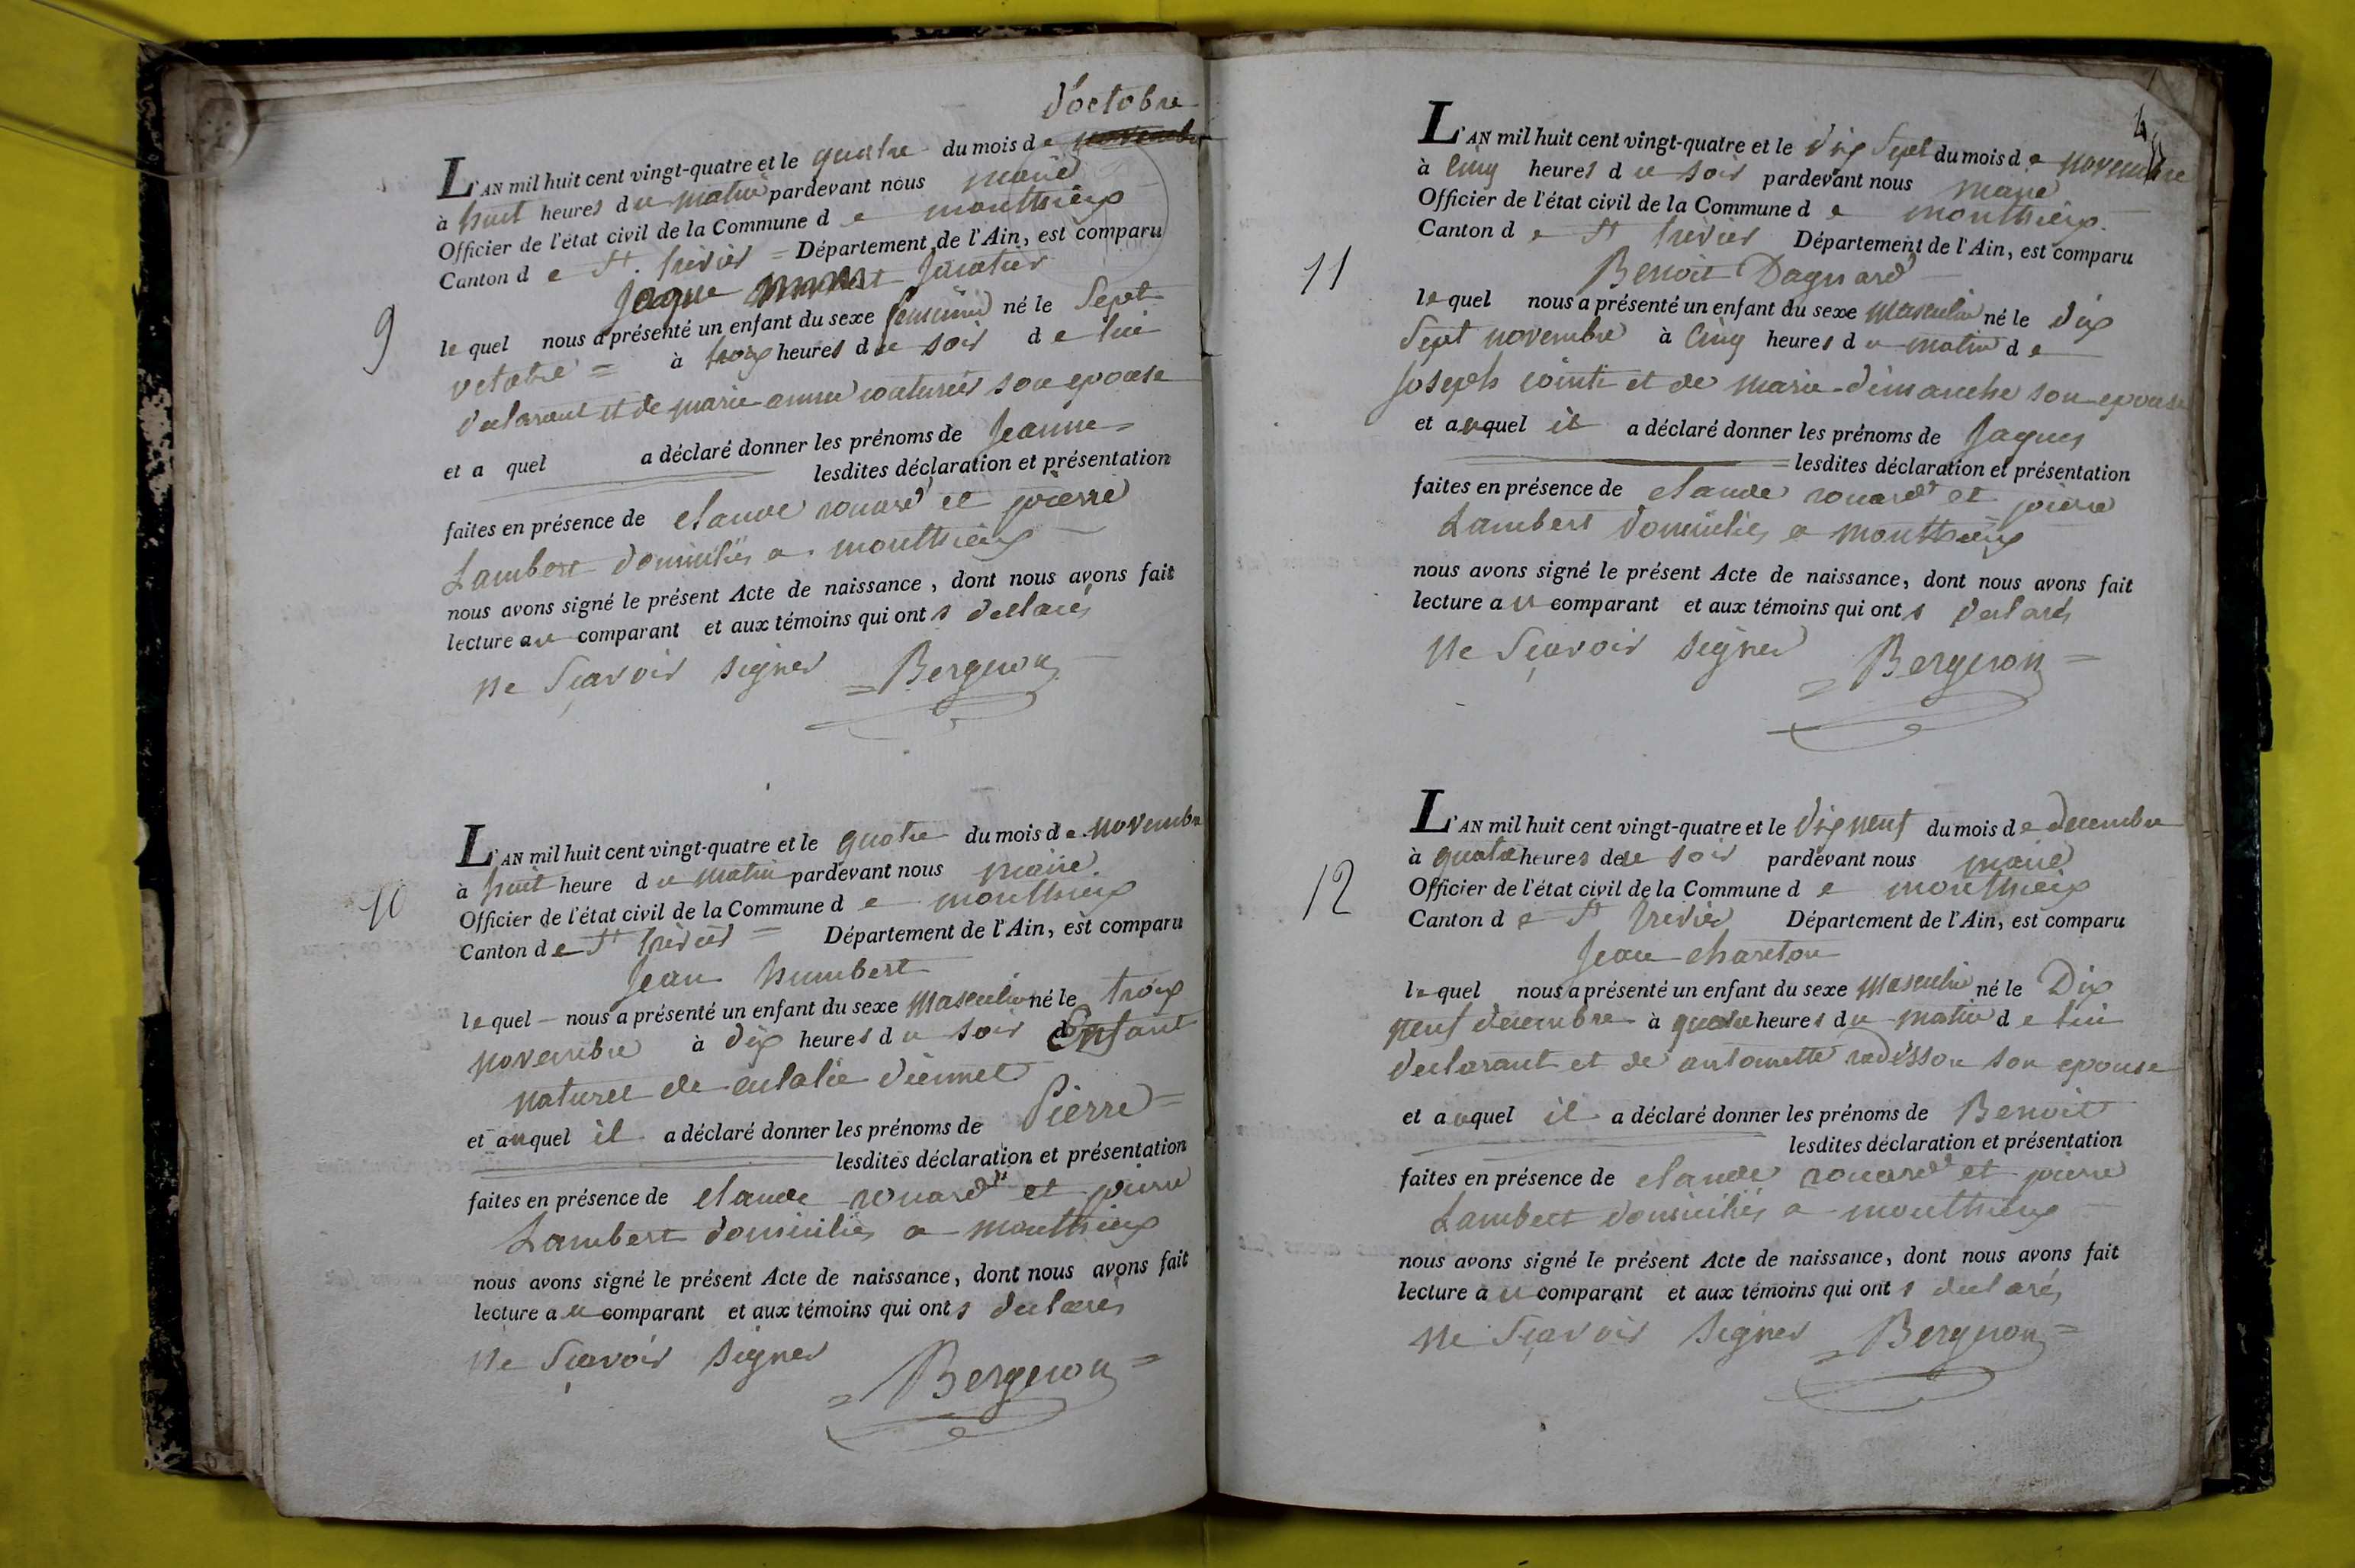 d'octobre
L'AN mil huit cent vingt-quatre et le quatre du mois de
à huit heures du matin pardevant nous maire
Officier de l'état civil de la Commune de monthieux
Canton de St. trivier = Département de l'Ain, est comparu
Jaque
9
lequel nous a présenté un enfant du sexe feminin né le Sept
à trois heures du soir de lui
declarant et de marie anne son epouse
et a quel a déclaré donner les prénoms de Jeanne =
lesdites déclaration et présentation
faites en présence de claude rouard et pierre
Lambert domiciliés a monthieux
nous avons signé le présent Acte de naissance, dont nous avons fait
lecture au comparant et aux témoins qui ont s declarés
ne Sçavoir signer = Bergeron
L'AN mil huit cent vingt-quatre et le quatre du mois de novembre
à huit heure du matin pardevant nous maire
10
Officier de l'état civil de la Commune de monthieux
Canton de St trivier = Département de l'Ain, est comparu
Jean humbert
lequel nous a présenté un enfant du sexe masculin né le trois
novembre à dix heures du soir Enfant
naturel de eulalie viennet
et auquel il a déclaré donner les prénoms de Pierre =
lesdites déclaration et présentation
faites en présence de claude rouard et pierre
Lambert domiciliés a monthieux
nous avons signé le présent Acte de naissance, dont nous avons fait
lecture au comparant et aux témoins qui ont s declarés
ne Sçavoir signer
= Bergeron =
L'AN mil huit cent vingt-quatre et le dix Sept du mois de novembre
à cinq heures du soir pardevant nous maire
Officier de l'état civil de la Commune de monthieux
Canton de St trivier Département de l'Ain, est comparu
11
Benoit Dagnard
lequel nous a présenté un enfant du sexe masculin né le dix
Sept novembre à cinq heures du matin de
Joseph et de marie dimanche son epouse
et auquel il a déclaré donner les prénoms de Jaques
= lesdites déclaration et présentation
faites en présence de claude rouard et pierre
Lambert domiciliés a monthieux
nous avons signé le présent Acte de naissance, dont nous avons fait
lecture au comparant et aux témoins qui ont s declarés
ne Sçavoir signer
= Bergeron =
L'AN mil huit cent vingt-quatre et le dix neuf du mois de decembre
à quatre heures de soir pardevant nous maire
Officier de l'état civil de la Commune de monthieux
12
Canton de St trivier Département de l'Ain, est comparu
Jean chareton
lequel nous a présenté un enfant du sexe masculin né le Dix
neuf decembre à quatre heures du matin de lui
declarant et de antoinette radisson son epouse
et auquel il a déclaré donner les prénoms de Benoit
lesdites déclaration et présentation
faites en présence de claude rouard et pierre
Lambert domiciliés a monthieux
nous avons signé le présent Acte de naissance, dont nous avons fait
lecture au comparant et aux témoins qui ont s declarés
ne Sçavoir signer = Bergeron =